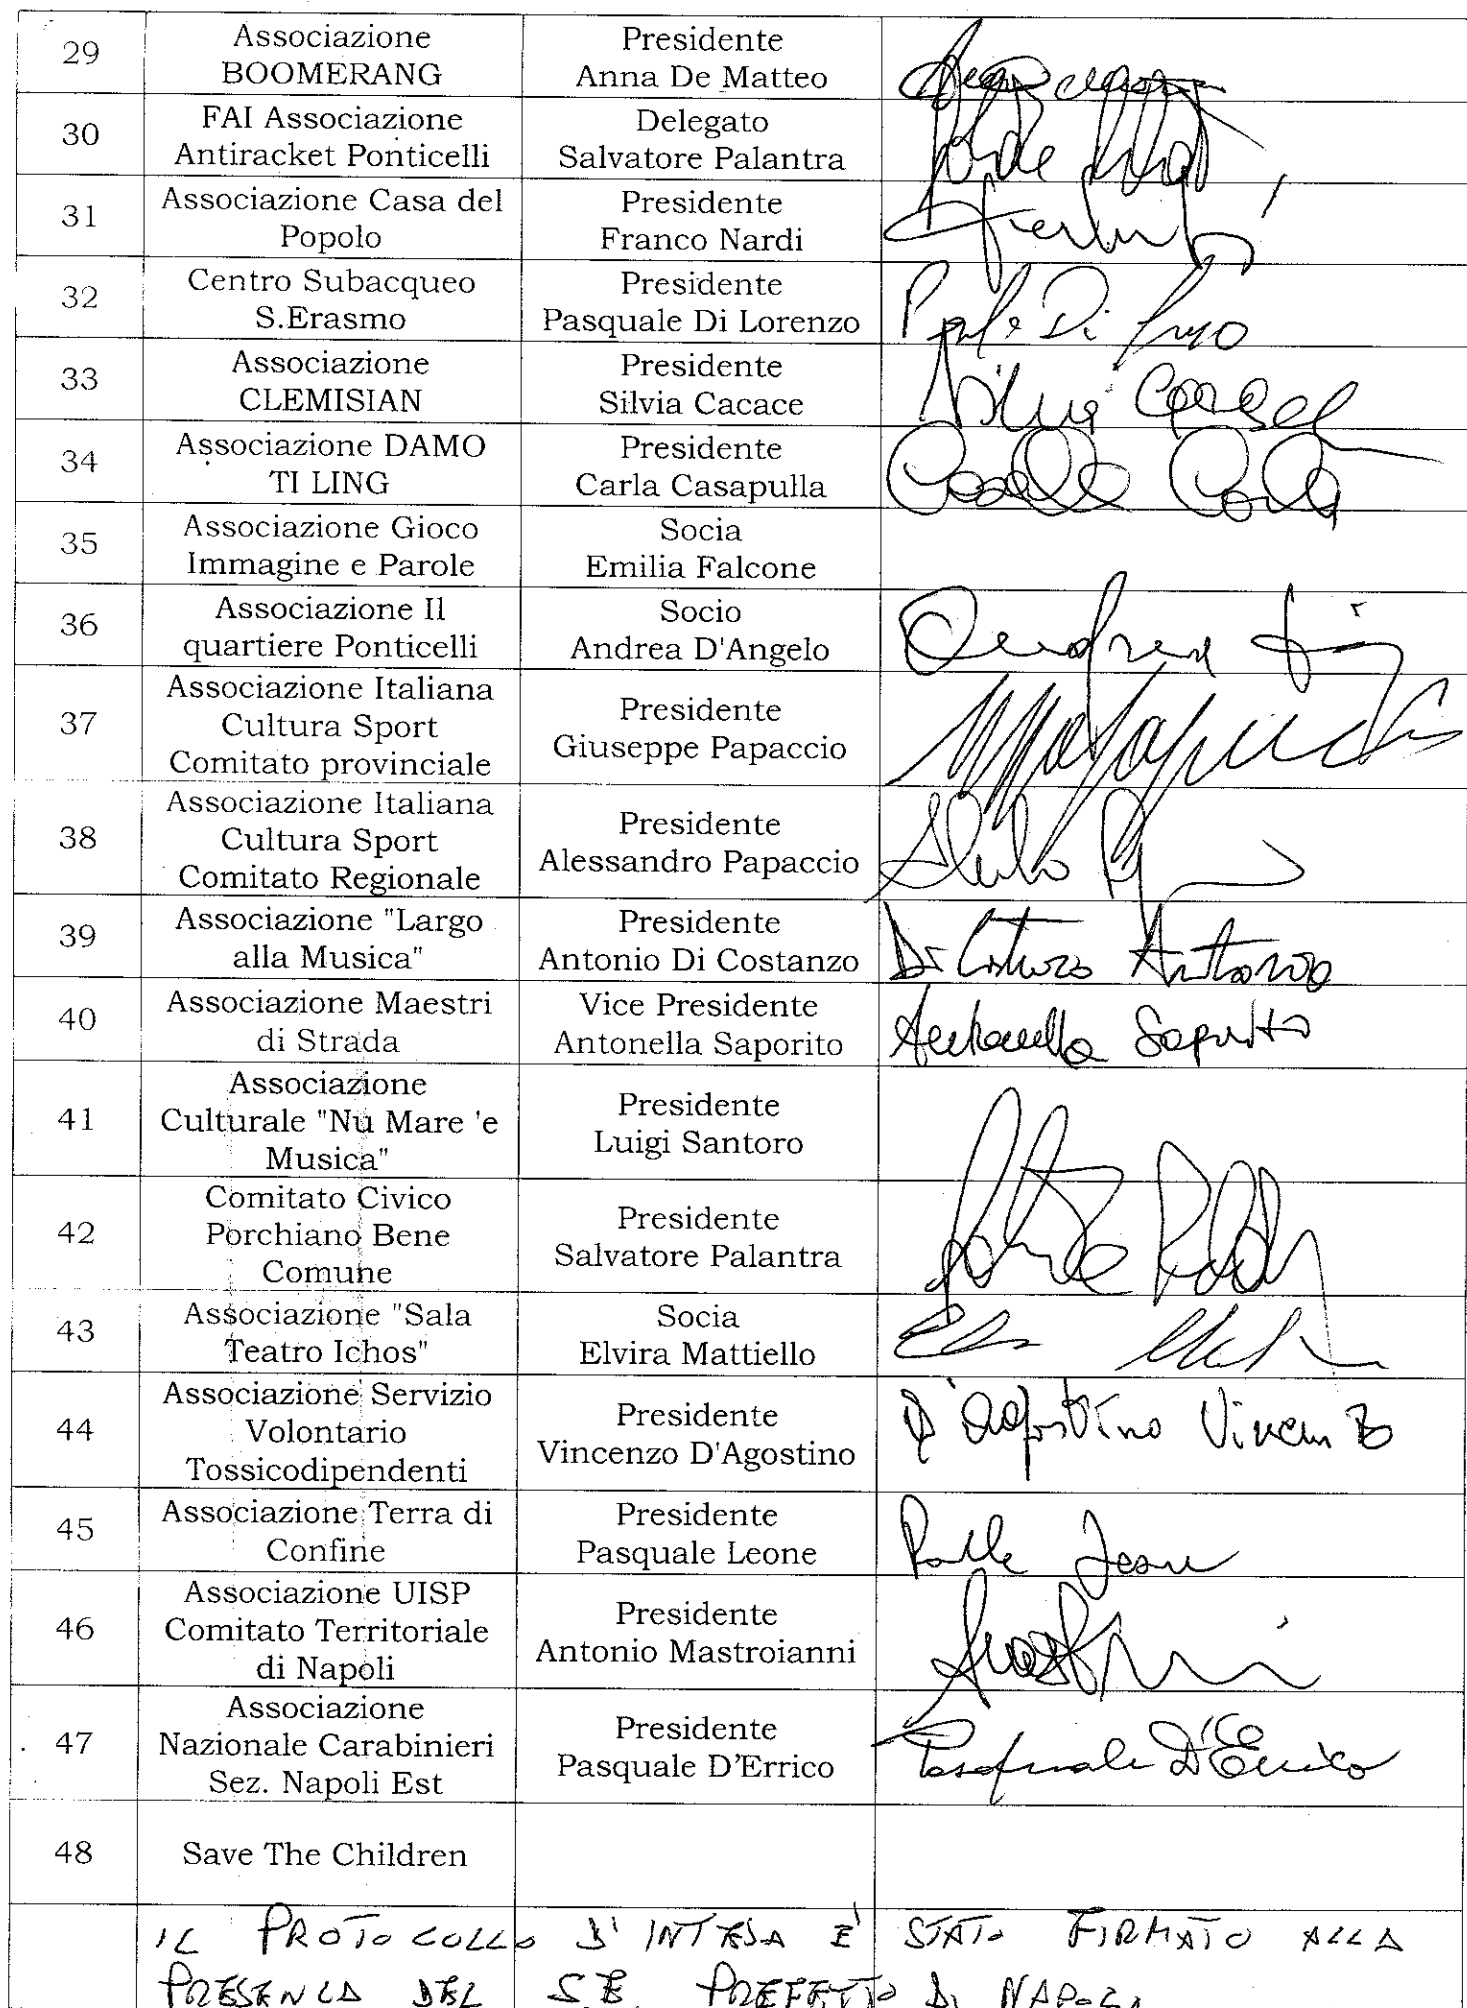 29 Associazione BOOMERANG Presidente Anna De Matteo
30 FAI Associazione Antiracket Ponticelli Delegato Salvatore Palantra
31 Associazione Casa del Popolo Presidente Franco Nardi
32 Centro Subacqueo S.Erasmo Presidente Pasquale Di Lorenzo
33 Associazione CLEMISIAN Presidente Silvia Cacace
34 Associazione DAMO TI LING Presidente Carla Casapulla
35 Associazione Gioco Immagine e Parole Socia Emilia Falcone
36 Associazione Il quartiere Ponticelli Socio Andrea D'Angelo
37 Associazione Italiana Cultura Sport Comitato provinciale Presidente Giuseppe Papaccio
38 Associazione Italiana Cultura Sport Comitato Regionale Presidente Alessandro Papaccio
39 Associazione "Largo alla Musica" Presidente Antonio Di Costanzo Antonio
40 Associazione Maestri di Strada Vice Presidente Antonella Saporito Antonella Saporito
41 Associazione Culturale "Nu Mare 'e Musica" Presidente Luigi Santoro
42 Comitato Civico Porchiano Bene Comune Presidente Salvatore Palantra
43 Associazione "Sala Teatro Ichos" Socia Elvira Mattiello
44 Associazione Servizio Volontario Tossicodipendenti Presidente Vincenzo D'Agostino D'Agostino Vincenzo
45 Associazione Terra di Confine Presidente Pasquale Leone
46 Associazione UISP Comitato Territoriale di Napoli Presidente Antonio Mastroianni
47 Associazione Nazionale Carabinieri Sez. Napoli Est Presidente Pasquale D'Errico Pasquale D'Errico
48 Save The Children
IL PROTOCOLLO D'INTESA E' STATO FIRMATO ALLA
PRESENZA DEL S.E. PREFETTO DI NAPOLI